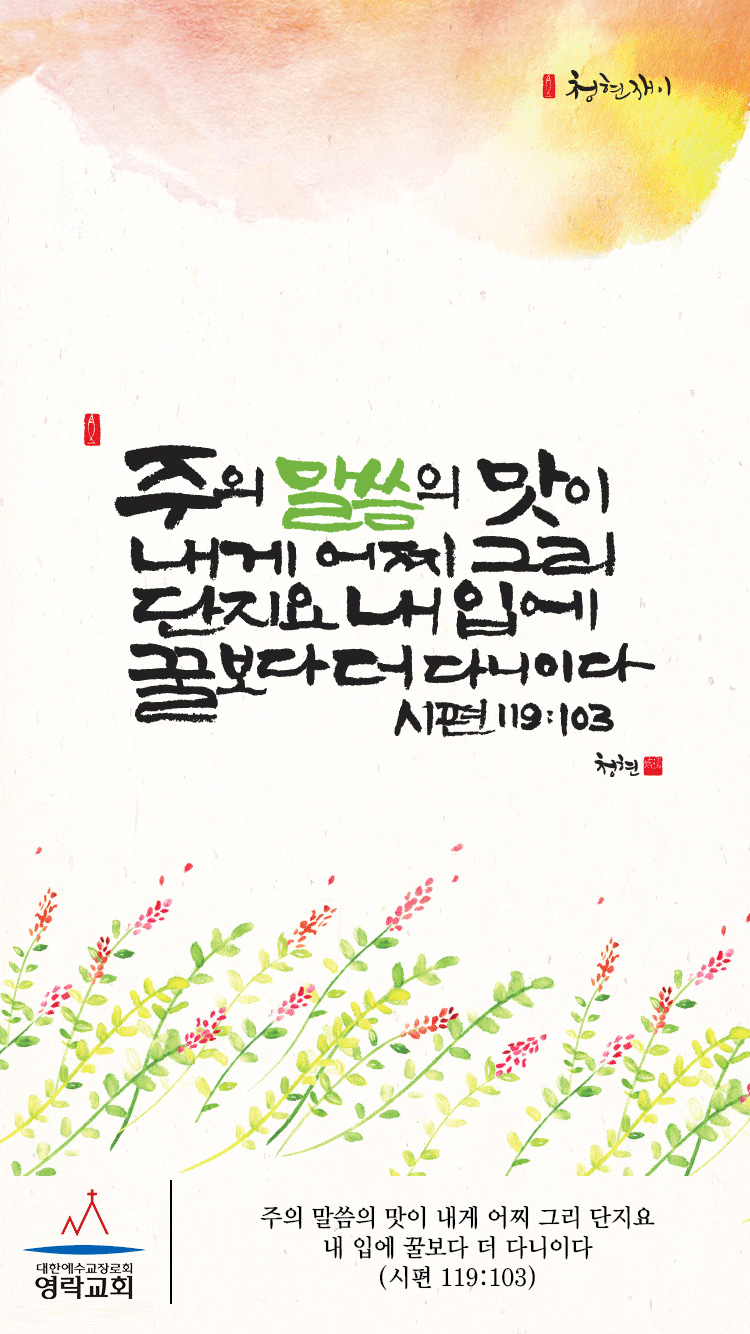 청현재이
주의 말씀의 맛이
내게 어찌 그리
단지요 내 입에
꿀보다 더 다니이다
시편 119:103
청현
대한예수교장로회
영락교회
주의 말씀의 맛이 내게 어찌 그리 단지요
내 입에 꿀보다 더 다니이다
(시편 119:103)